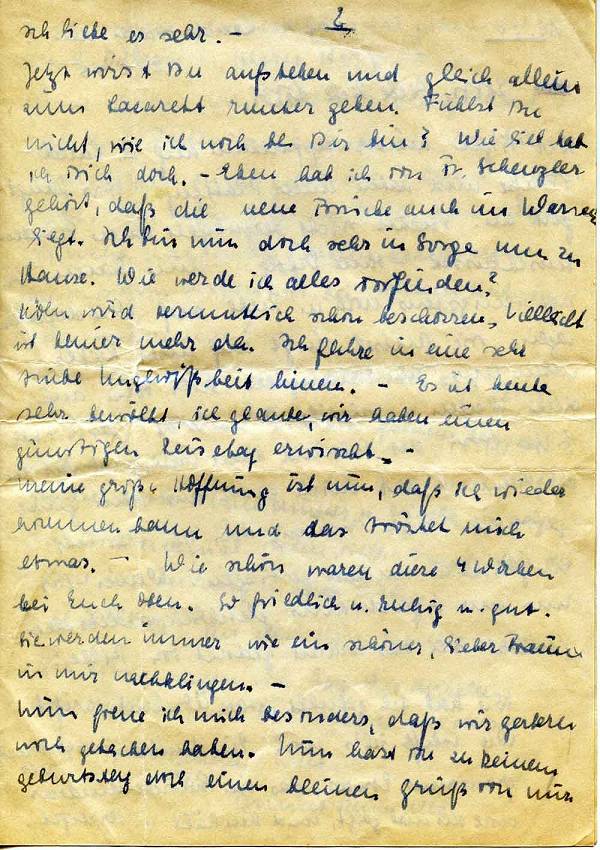 2.
Ich liebe es sehr. -
Jetzt wirst Du aufstehen und gleich allein
zum Lazarett runter gehen. Fühlst Du
nicht, wie ich noch bei Dir bin? Wie lieb hab
ich Dich doch. - Eben hab ich von Dr.
gehört, daß die neue Brücke auch im Wasser
liegt. Ich bin nun doch sehr in Sorge um zu
Hause. Wie werde ich alles vorfinden?
Köln wird vermutlich schon beschossen, vielleicht
ist keiner mehr da. Ich fahre in eine sehr
trübe Ungewißheit hinein. - Es ist heute
sehr bewölkt, ich glaube, wir haben einen
günstigen Reisetag erwischt. -
Meine große Hoffnung ist nun, daß ich wieder
kommen kann und das tröstet mich
etwas. - Wie schön waren diese 4 Wochen
bei Euch oben. So friedlich u. ruhig u. gut.
Sie werden immer wie ein schöner, lieber Traum
in mir nachklingen. -
Nun freue ich mich besonders, daß wir gestern
noch gebacken haben. Nun hast Du zu Deinem
Geburtstag doch einen kleinen Gruß von mir